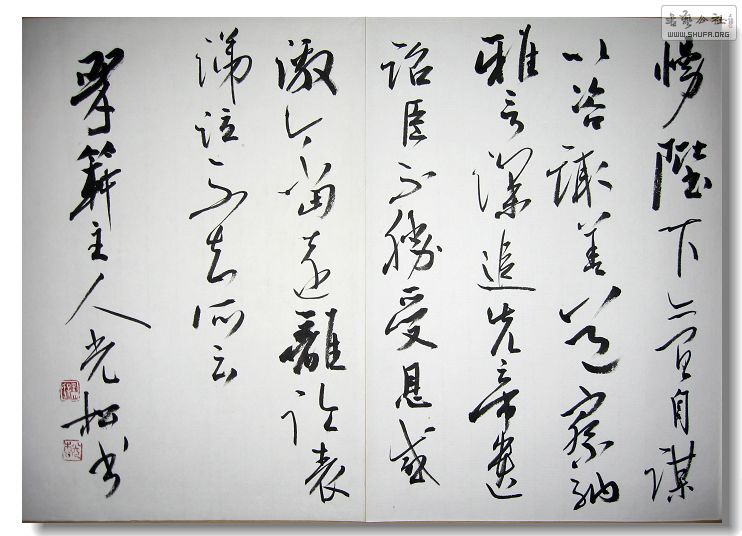 慢陛下亦宜自謀
以咨諏善道察納
雅言深追先帝遺
詔臣不勝受恩感
激今當遠離臨表
涕泣不知所云
主人光松書
书艺公社
WWW.SHUFA.ORG